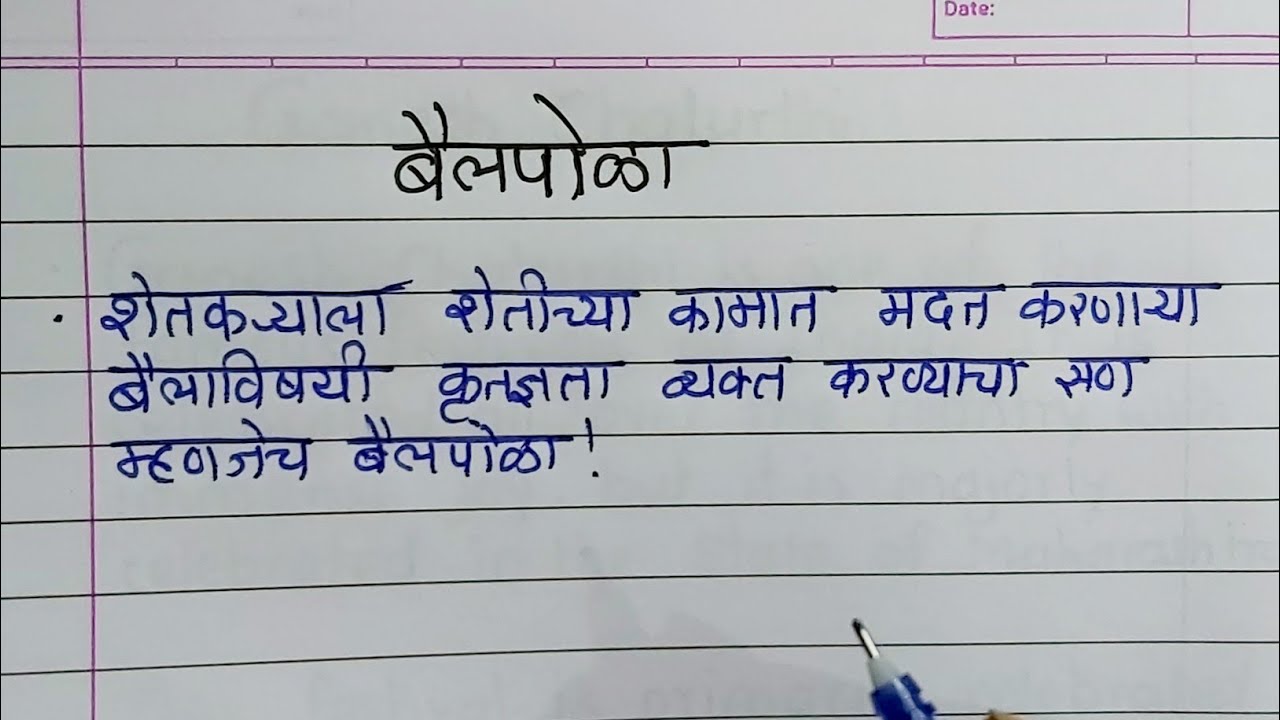 Date:
बैलपोळा
. शेतकऱ्याला शेतीच्या कामात मदत करणाऱ्या
बैलाविषयी कृतज्ञता व्यक्त करण्याचा सण
म्हणजेच बैलपोळा!